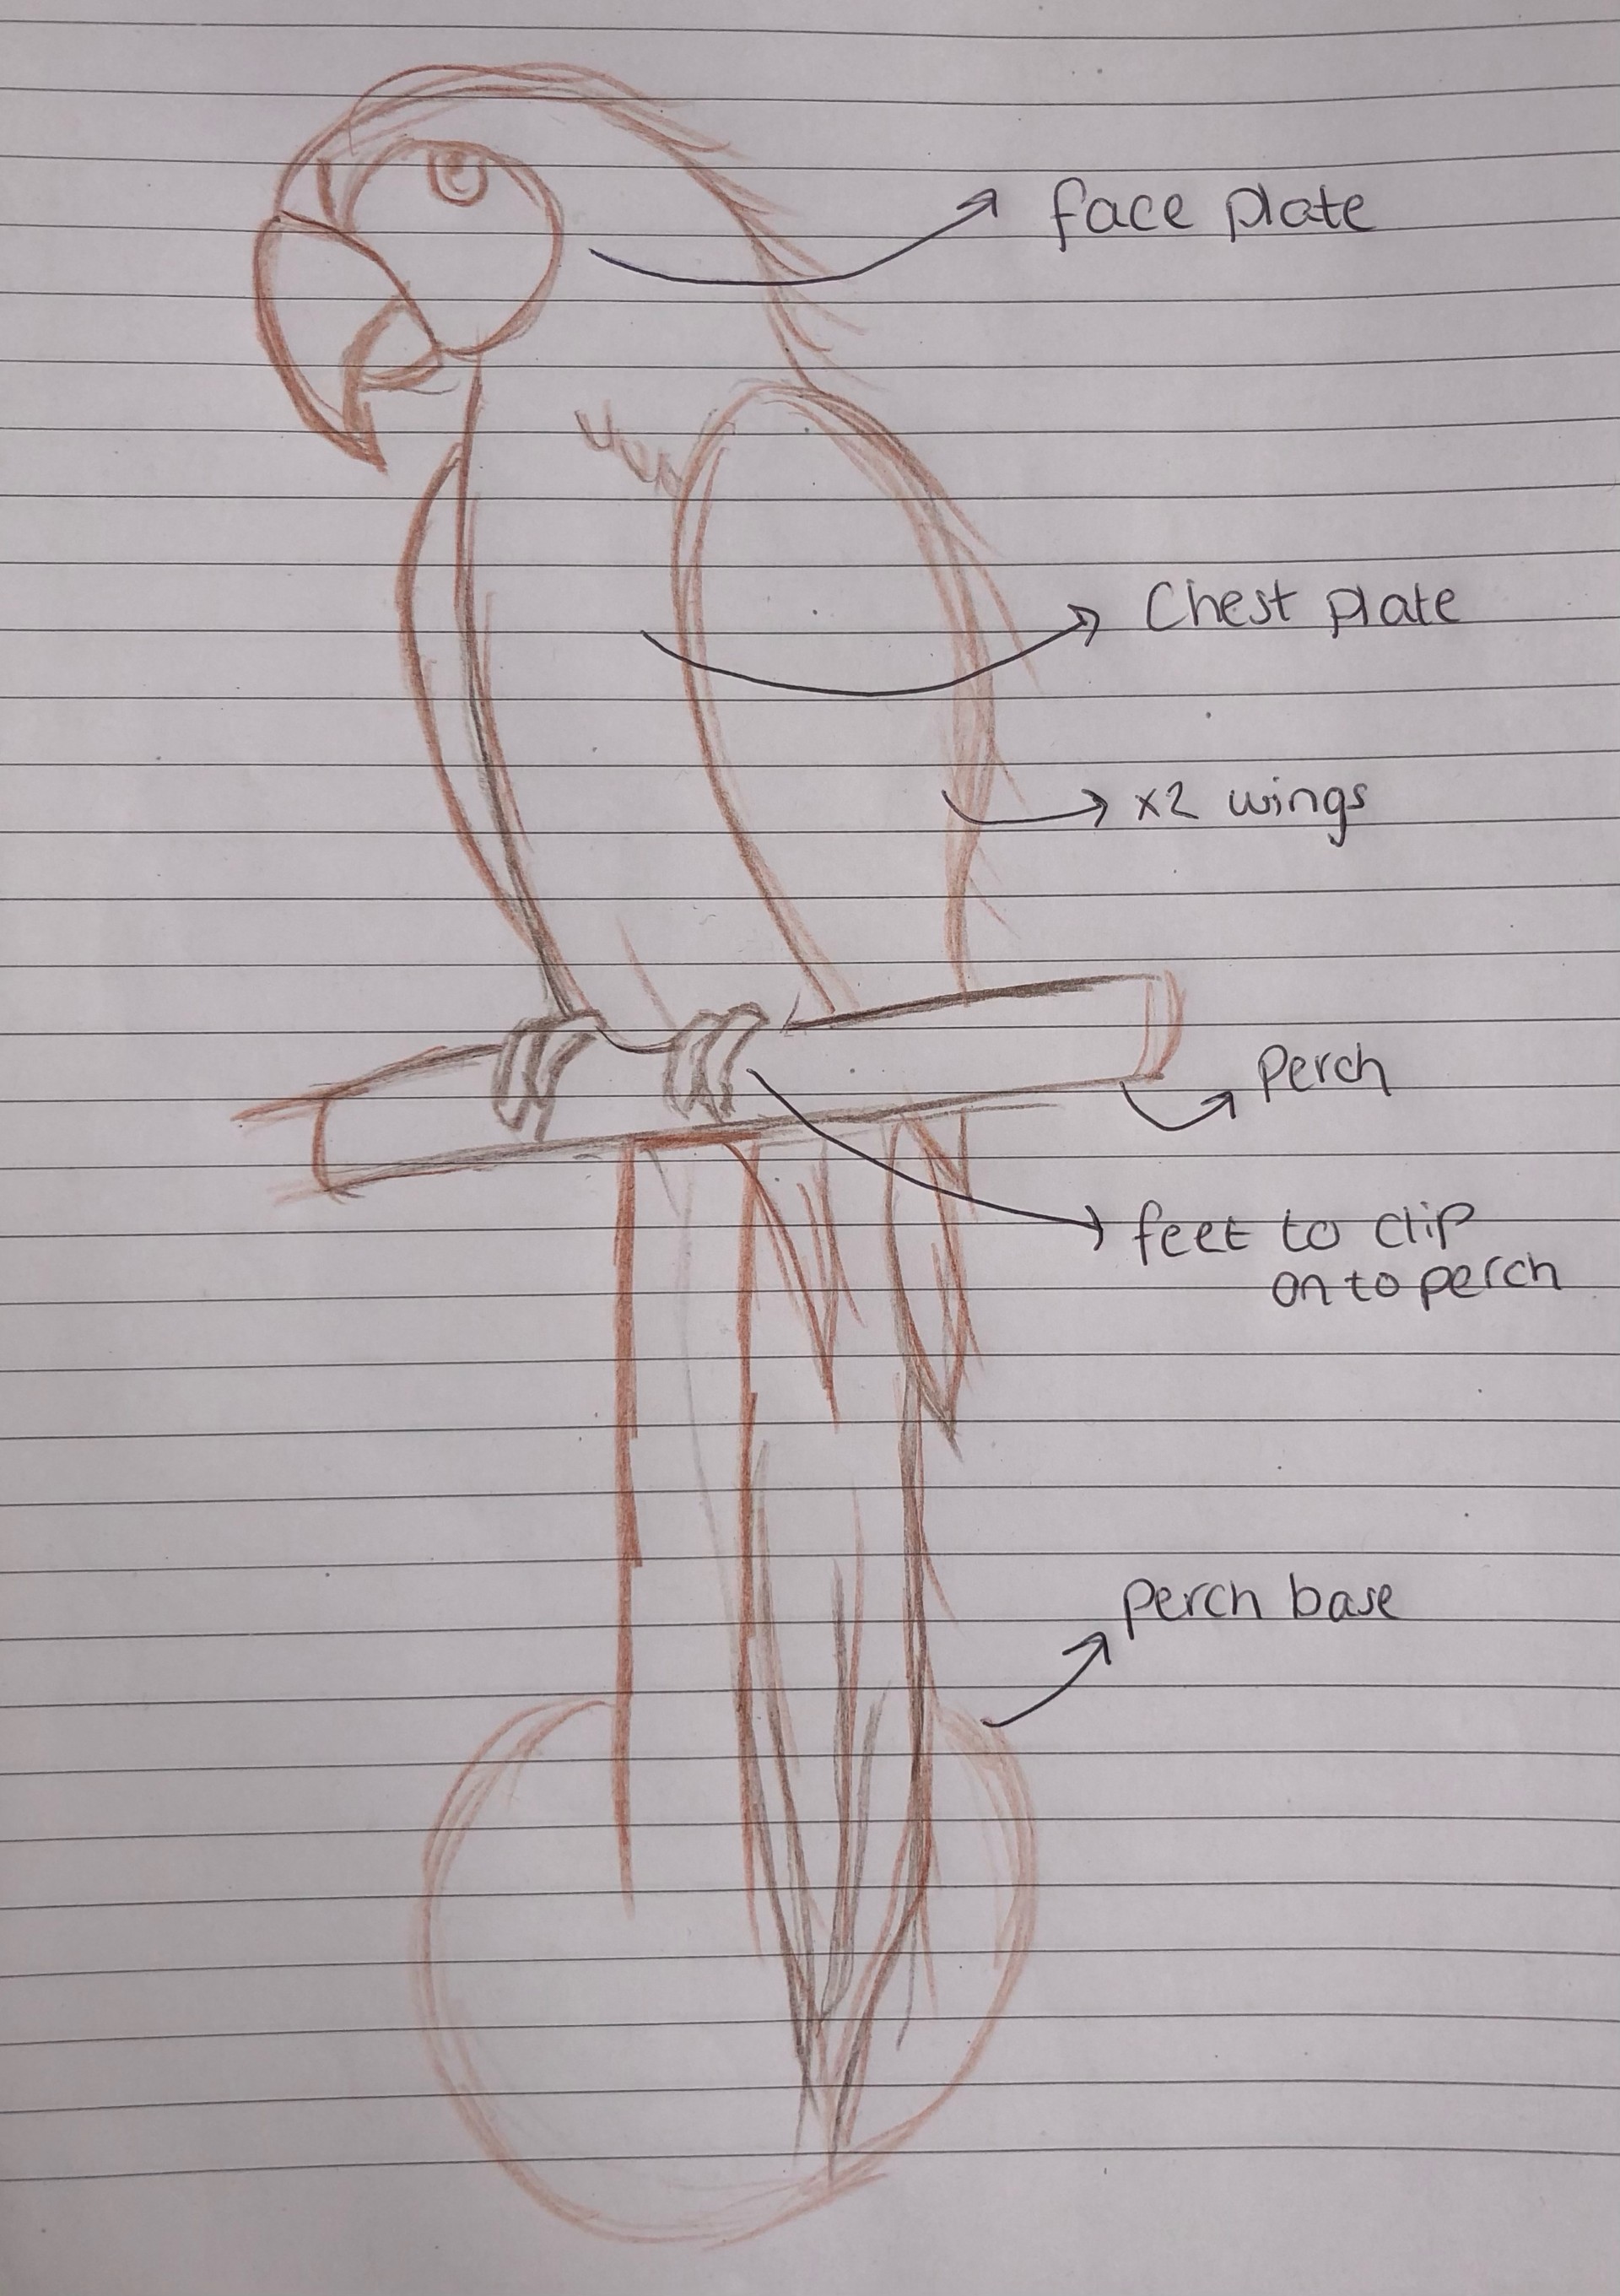 face plate
Chest plate
x2 wings
Perch
feet to clip
on to perch
perch base